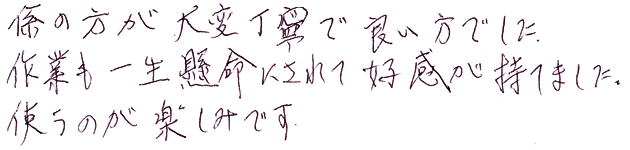 係の方が大変丁寧で良い方でした.
作業も一生懸命にされて好感が持てました。
使うのが楽しみです.